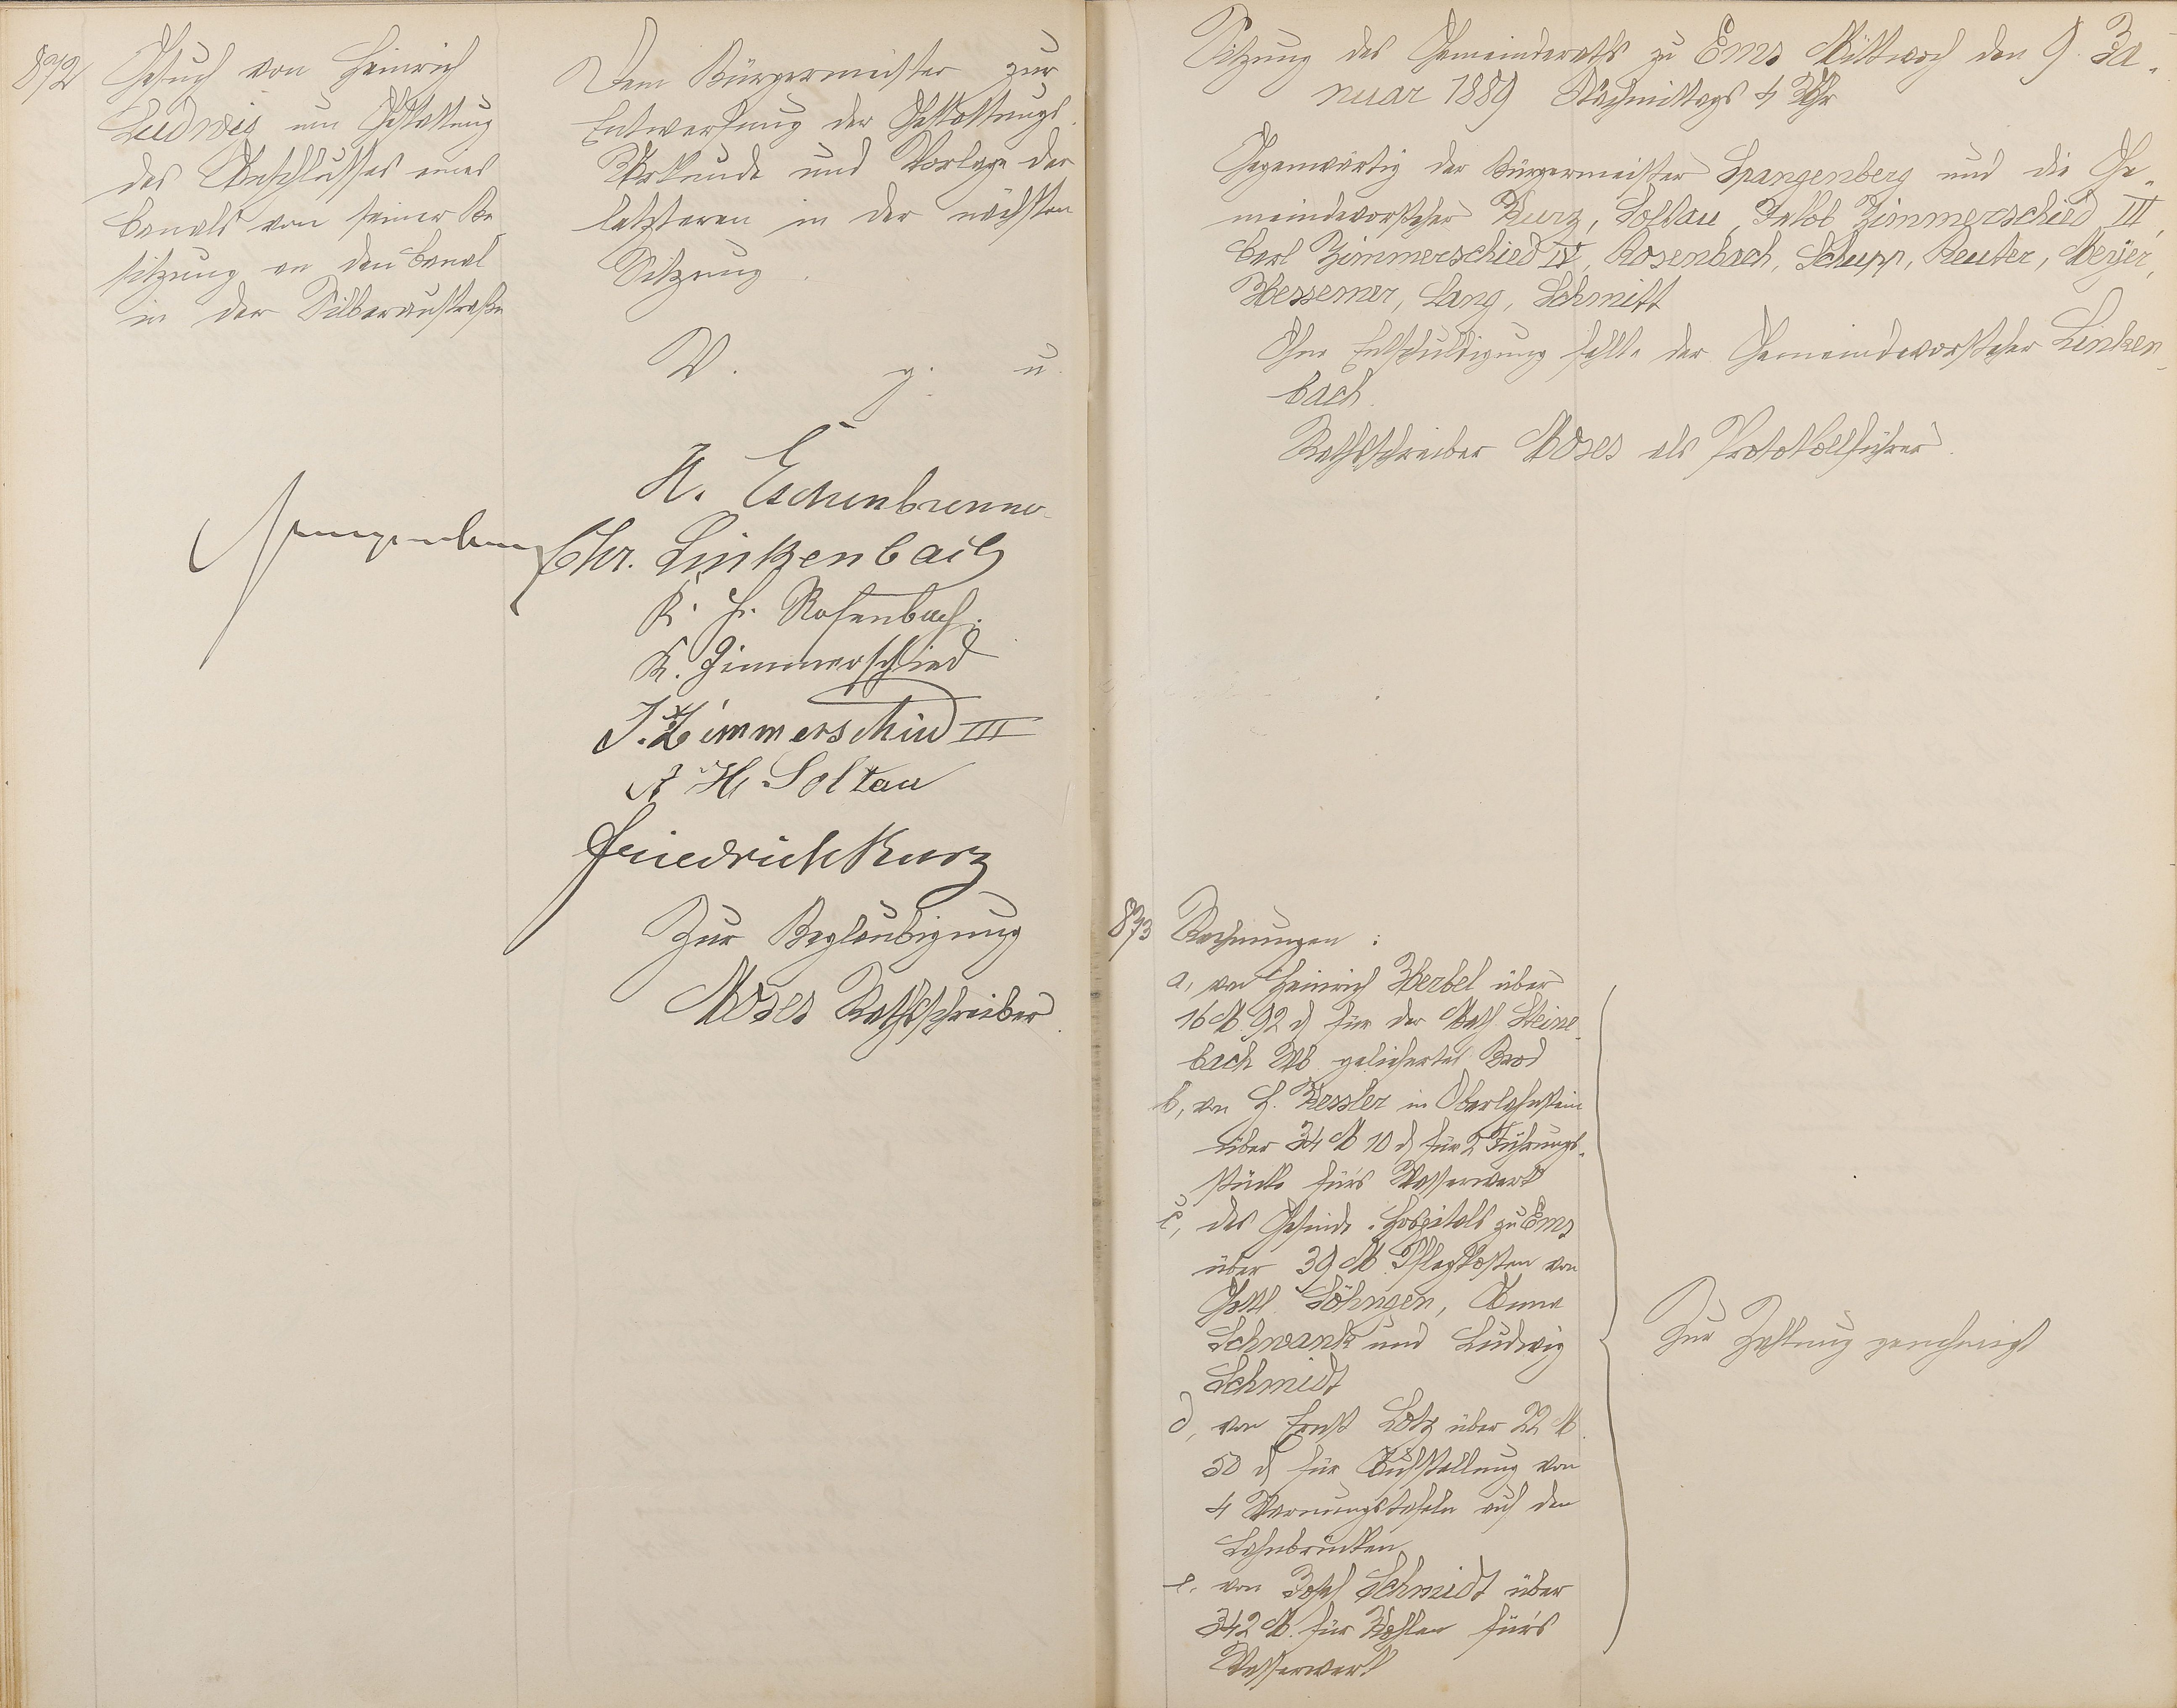 872
Gesuch von Heinrich
Ludwig um Gestattung
des Anschlusses eines
Canals von seiner Be-
sitzung an den Canal
in der Silberaustraße
Dem Bürgermeister zur
Entwerfung der Gestattungs-
Urkunde und Vorlage der
letzteren in der nächsten
Sitzung.
V. g. u.
Spangenberg
H. Eschenbrenner
Chr. Linkenbach
K. H. Rosenbach.
K. Zimmerschied
J. Zimmerschied III
A H. Soltau
Friedrich Kurz
Zur Beglaubigung
Moses Rathsschreiber
Sitzung des Gemeinderaths zu Ems Mittwoch den 9. Ja-
nuar 1889 Nachmittags 4 Uhr
Gegenwärtig der Bürgermeister Spangenberg und die Ge-
meindevorsteher Kurz, Soltau, Jakob Zimmerschied III,
Carl Zimmerschied IV, Rosenbach, Schupp, Reuter, Meyer,
Hessemer, Lang, Schmitt
Ohne Entschuldigung fehlte der Gemeindevorsteher Linken-
bach.
Rathsschreiber Moses als Protokollführer.
873
Rechnungen:
a, von Heinrich Herbel über
16 M. 92 d für der Math. Steine-
bach Wb. geliefertes Brod
b, von H. Kessler in Oberlahnstein
über 34 M 10 d für 2 Führungs-
stücke für's Wasserwerk
c, des Gesinde-Hospitals zu Ems
über 39 M. Pflegkosten von
Gottl. Söhngen, Anna
Schwank und Ludwig
Schmidt
d, von Ernst Lotz über 22 M.
50 d für Aufstellung von
4 Warnungstafeln auf den
Lahnbrücken
e. von Josef Schmidt über
342 M. für Kohlen für's
Wasserwerk
Zur Zahlung genehmigt